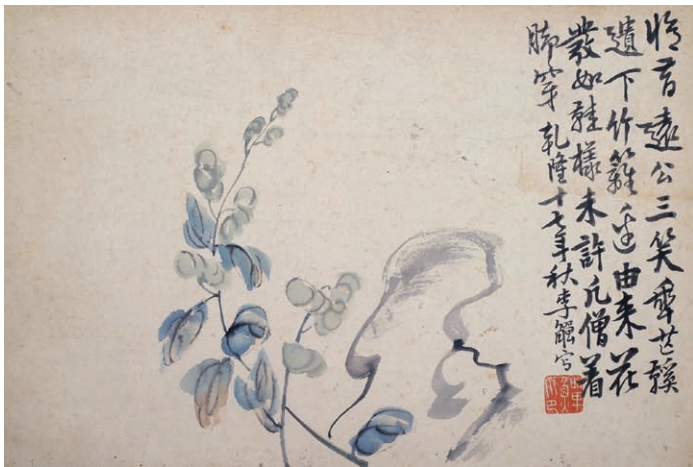 憶昔遠公三笑畢芒鞵
遺下竹籬邊由来花
發如鞋樣未許凡僧着
脚穿 乾隆十七年秋李鱓写